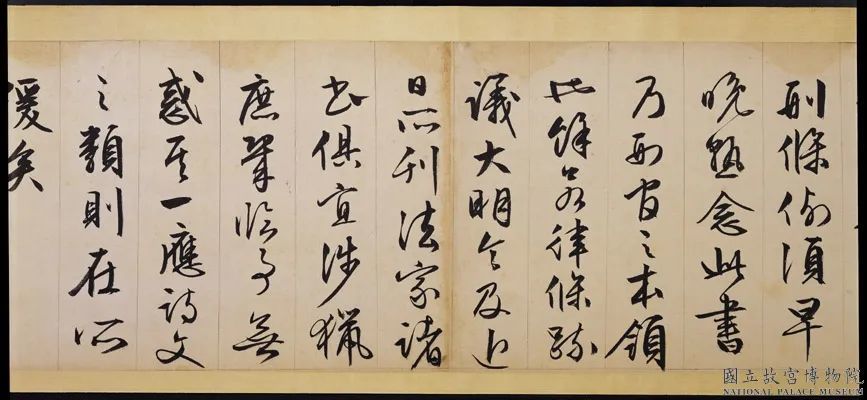 刑條例須早
晚熟念此書
乃刑官之本領
此餘如律條疏
議大明令及近
日所刊法家諸
書俱宜涉獵
庶幾臨事無
惑其一應詩文
之類則在所
緩矣
國立故宮博物院
NATIONAL PALACE MUSEUM